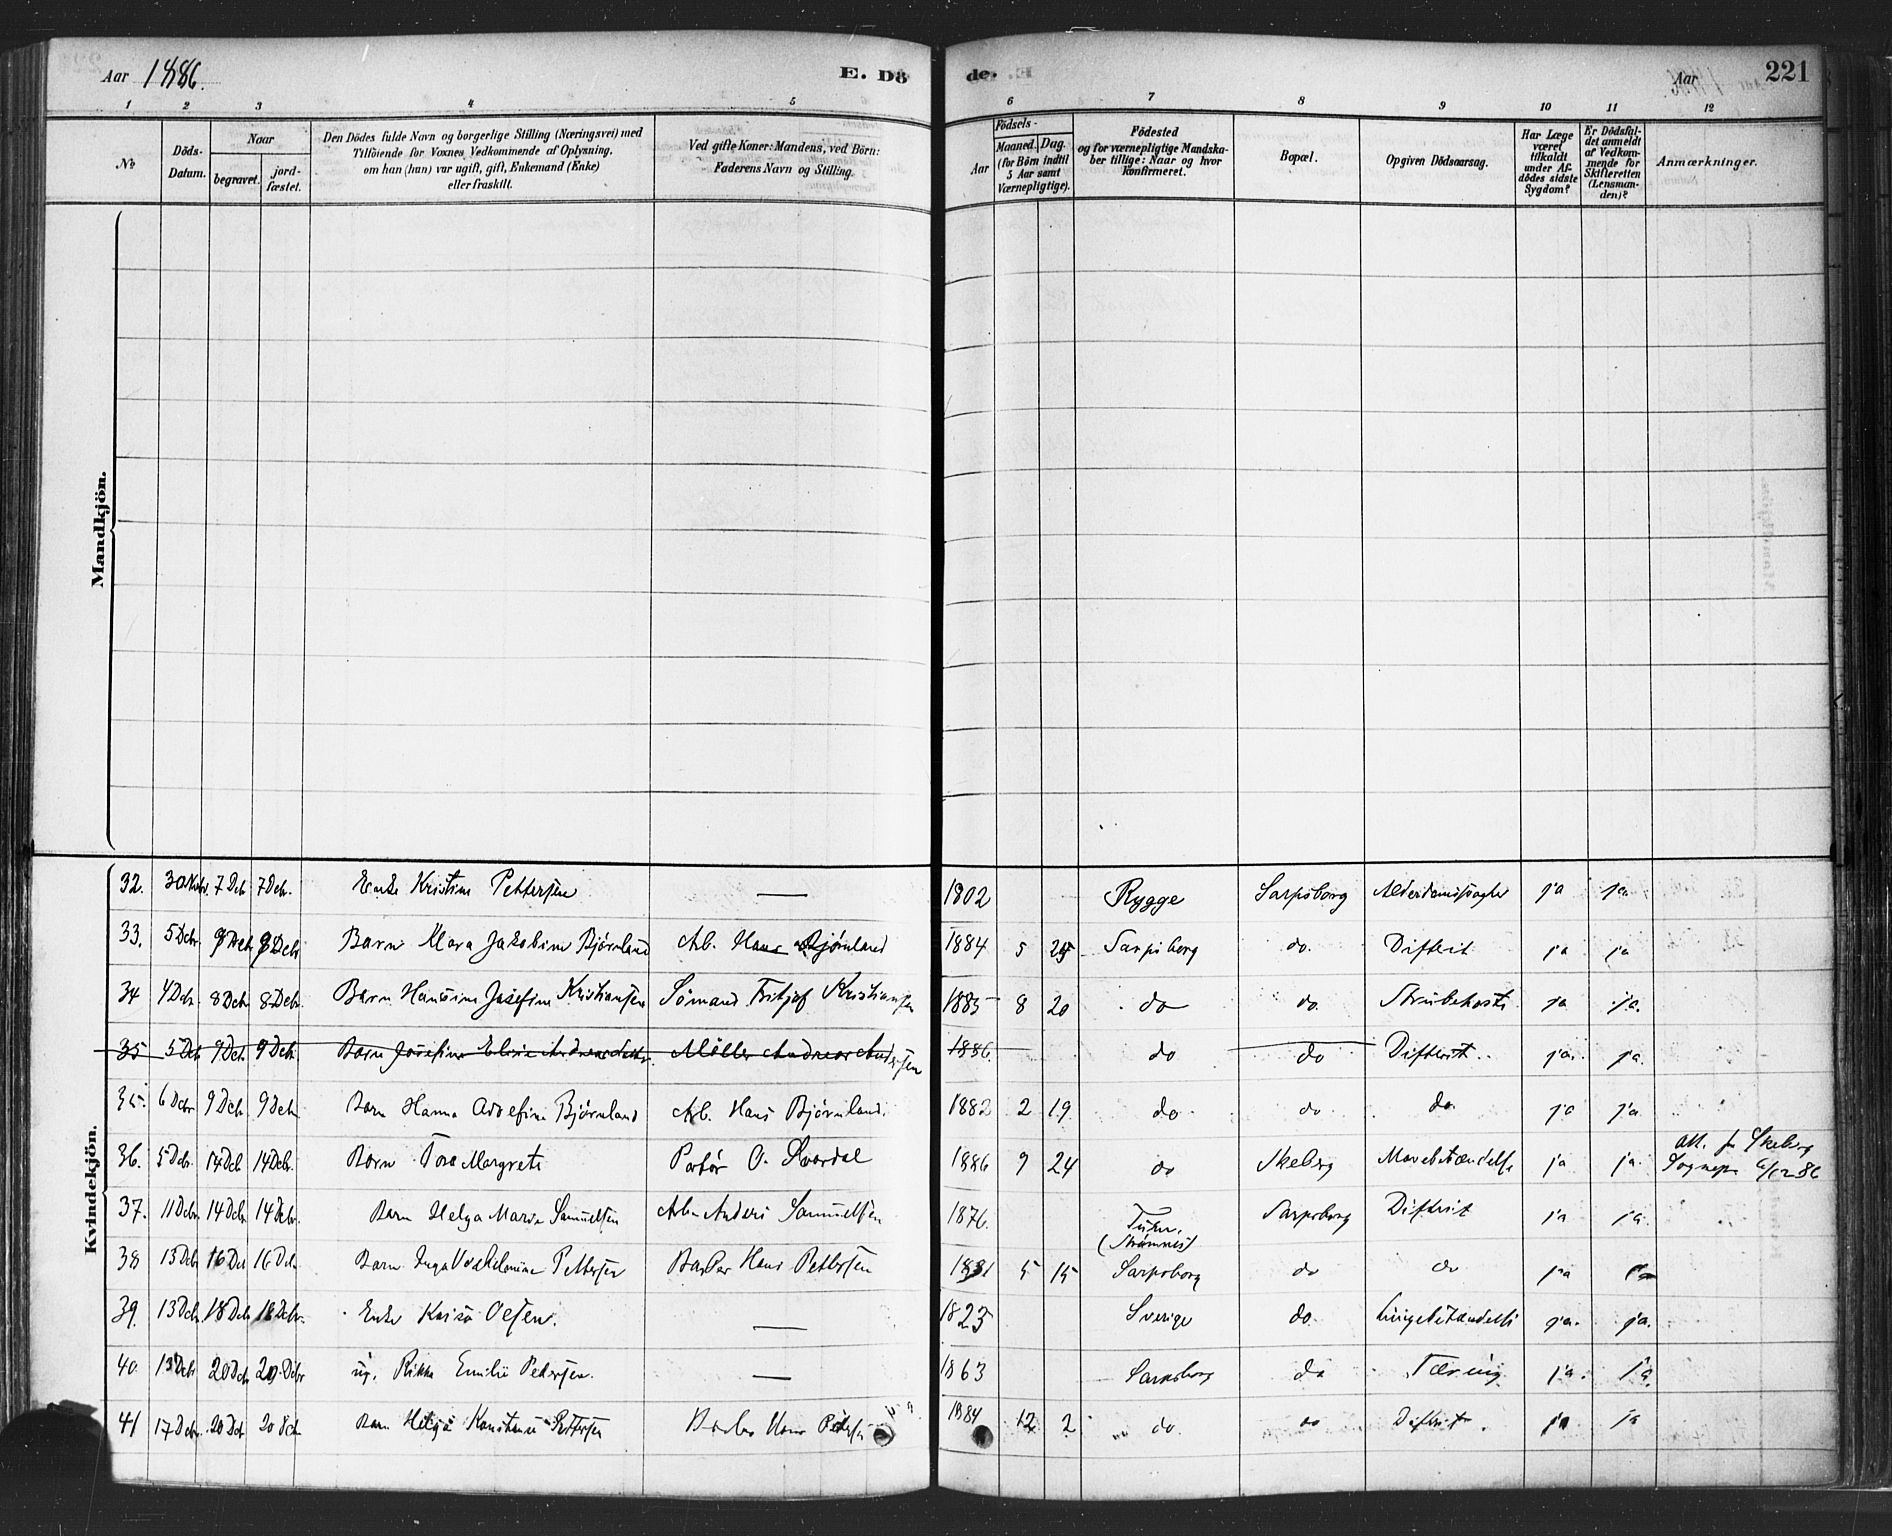 Aar 1886. E. Döde. Aar 221
1 2 3 4 5 6 7 8 9 10 11 12
No
Döds-Datum.
Naar
begravet. jord-fæstet.
Den Dödes fulde Navn og borgerlige Stilling (Næringsvei) med
Tilföiende for Voxnes Vedkommende af Oplysning,
om han (hun) var ugift, gift, Enkemand (Enke)
eller fraskilt.
Ved gifte Koner: Mandens, ved Börn:
Faderens Navn og Stilling.
Födsels-
Aar Maaned. Dag.
(for Börn indtil
5 Aar samt
Værnepligtige).
Födested
og for værnepligtige Mandska-
ber tillige: Naar og hvor
konfirmeret.
Bopæl.
Opgiven Dödsaarsag.
Har Læge
været
tilkaldt
under Af-
dödes sidste
Sygdom?
Er Dödsfal-
det anmeldt
af Vedkom-
mende for
Skifteretten
(Lensman-
den)?
Anmærkninger.
Mandkjön.
Kvindekjön.
32. 30 7 Dcb 7 Dcb. Enke Kristine Pettersen — 1802 Rygge Sarpsborg ja ja
33. 5 Dcbr 9 Dcb 9 Dcb Barn Mara Jakobine Bjørnland Arb. Hans Bjørnland 1884 5 25 Sarpsborg do. Difterit ja ja
34 4 Dcb. 8 Dcb 8 Dcb Barn Hansine Josefine Kristiansen Sømand Fritjof Kristiansen 1885 8 20 do do. Strubehoste ja ja.
35 5 Dcb 9 Dcb. 9 Dcb. Barn Josefine Elise Møller Andreas Andersen 1886. do do Difterit. ja. ja.
35. 6 Dcbr 9 Dcb 9 Dcb Barn Hanna Adolefine Bjørnland Arb. Hans Bjørnland. 1882 2 19 do do do. ja ja
36. 5 Dcbr. 14 Dcb 14 Dcb. Barn Tora Margrete O. 1886 9 24 do Skeberg ja ja. Att. fr Skeberg
Sognepr 6/12 86
37. 11 Dcbr. 14 Dcb. 14 Dcbr. Barn Helga Marie Samuelsen Arb. Anders Samuelsen 1876. Tune.
(Strømnes) Sarpsborg Difterit ja ja.
38 13 Dcb 16 Dcb 16 Dcb Barn Inga Pettersen Barber Hans Pettersen 1881 5 15 Sarpsborg do do ja ja
39. 13 Dcb. 18 Dcb 18 Dcbr. Enke Kaisa Olsen. — 1825 Sverige do. Lungebetændelse ja. ja.
40. 13 Dcb 20 Dcb 20 Dcbr ug. Rikka Emilie Petersen. — 1863 Sarpsborg do Tæring ja. ja.
41 17 Dcbr. 20 Dcb 20 Dcb Barn Helga Konstanse Pettersen Barber Hans Pettersen 1884 12 2 do. do Difterit. ja ja